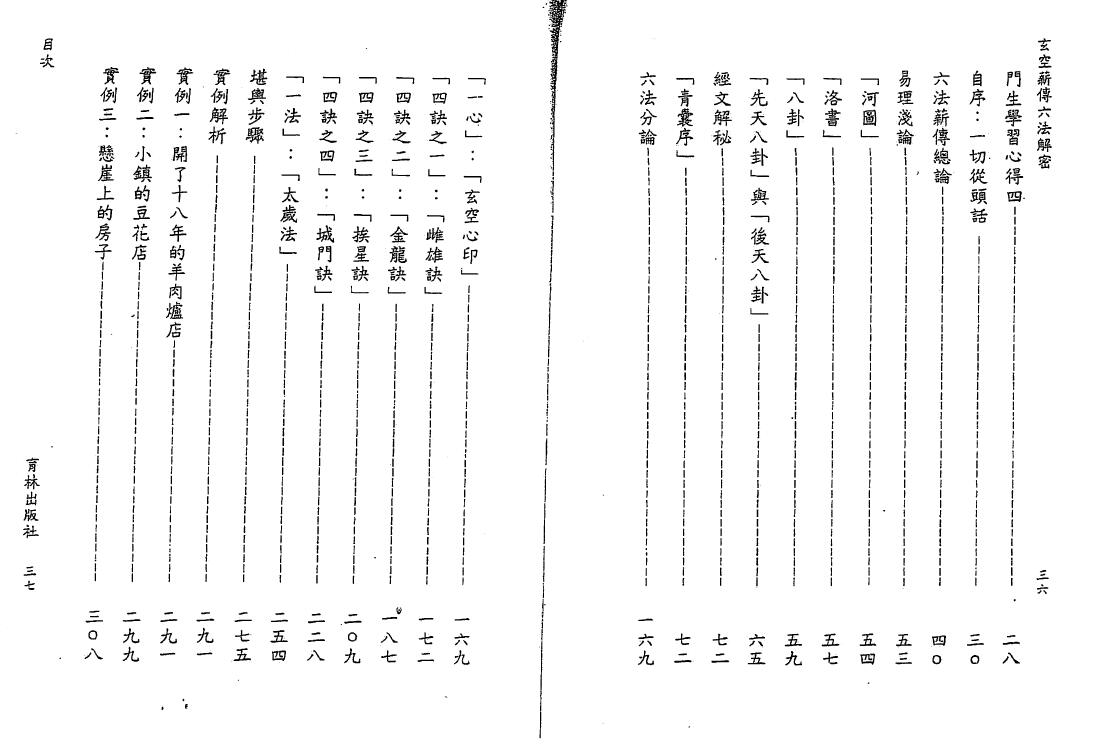 玄空薪傳六法解密
三六
門生學習心得四 二八
自序：一切從頭話 三〇
六法薪傳總論 四〇
易理淺論 五三
「河圖」 五四
「洛書」 五七
「八卦」 五九
「先天八卦」與「後天八卦」 六五
經文解秘 七二
「青囊序」 七二
六法分論 一六九
「一心」：「玄空心印」 一六九
「四訣之一」：「雌雄訣」 一七二
「四訣之二」：「金龍訣」 一八七
「四訣之三」：「挨星訣」 二〇九
「四訣之四」：「城門訣」 二二八
「一法」：「太歲法」 二五四
堪輿步驟 二七五
實例解析 二九一
實例一：開了十八年的羊肉爐店 二九一
實例二：小鎮的豆花店 二九九
實例三：懸崖上的房子 三〇八
目次
育林出版社 三七